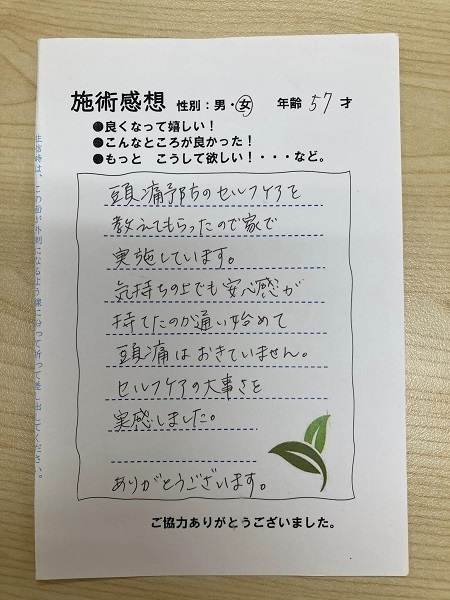 施術感想 性別：男・女 年齢 57 才
●良くなって嬉しい！
●こんなところが良かった！
●もっと こうして欲しい！・・・など。
頭痛予防のセルフケアを
教えてもらったので家で
実施しています。
気持ちの上でも安心感が
持てたのか通い始めて
頭痛はおきていません。
セルフケアの大事さを
実感しました。
ありがとうございます。
ご協力ありがとうございました。